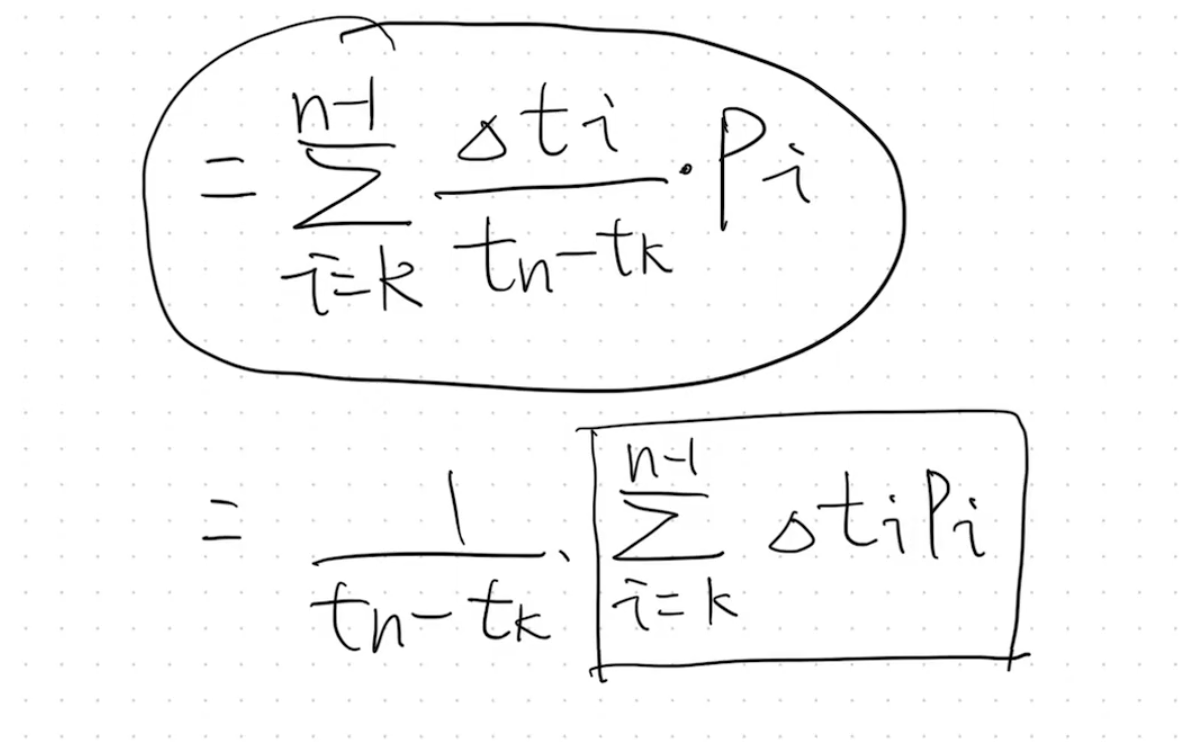 = \sum_{i=k}^{n-1} \frac{\Delta t_i}{t_n - t_k} \cdot P_i
= \frac{1}{t_n - t_k} \cdot \sum_{i=k}^{n-1} \Delta t_i P_i